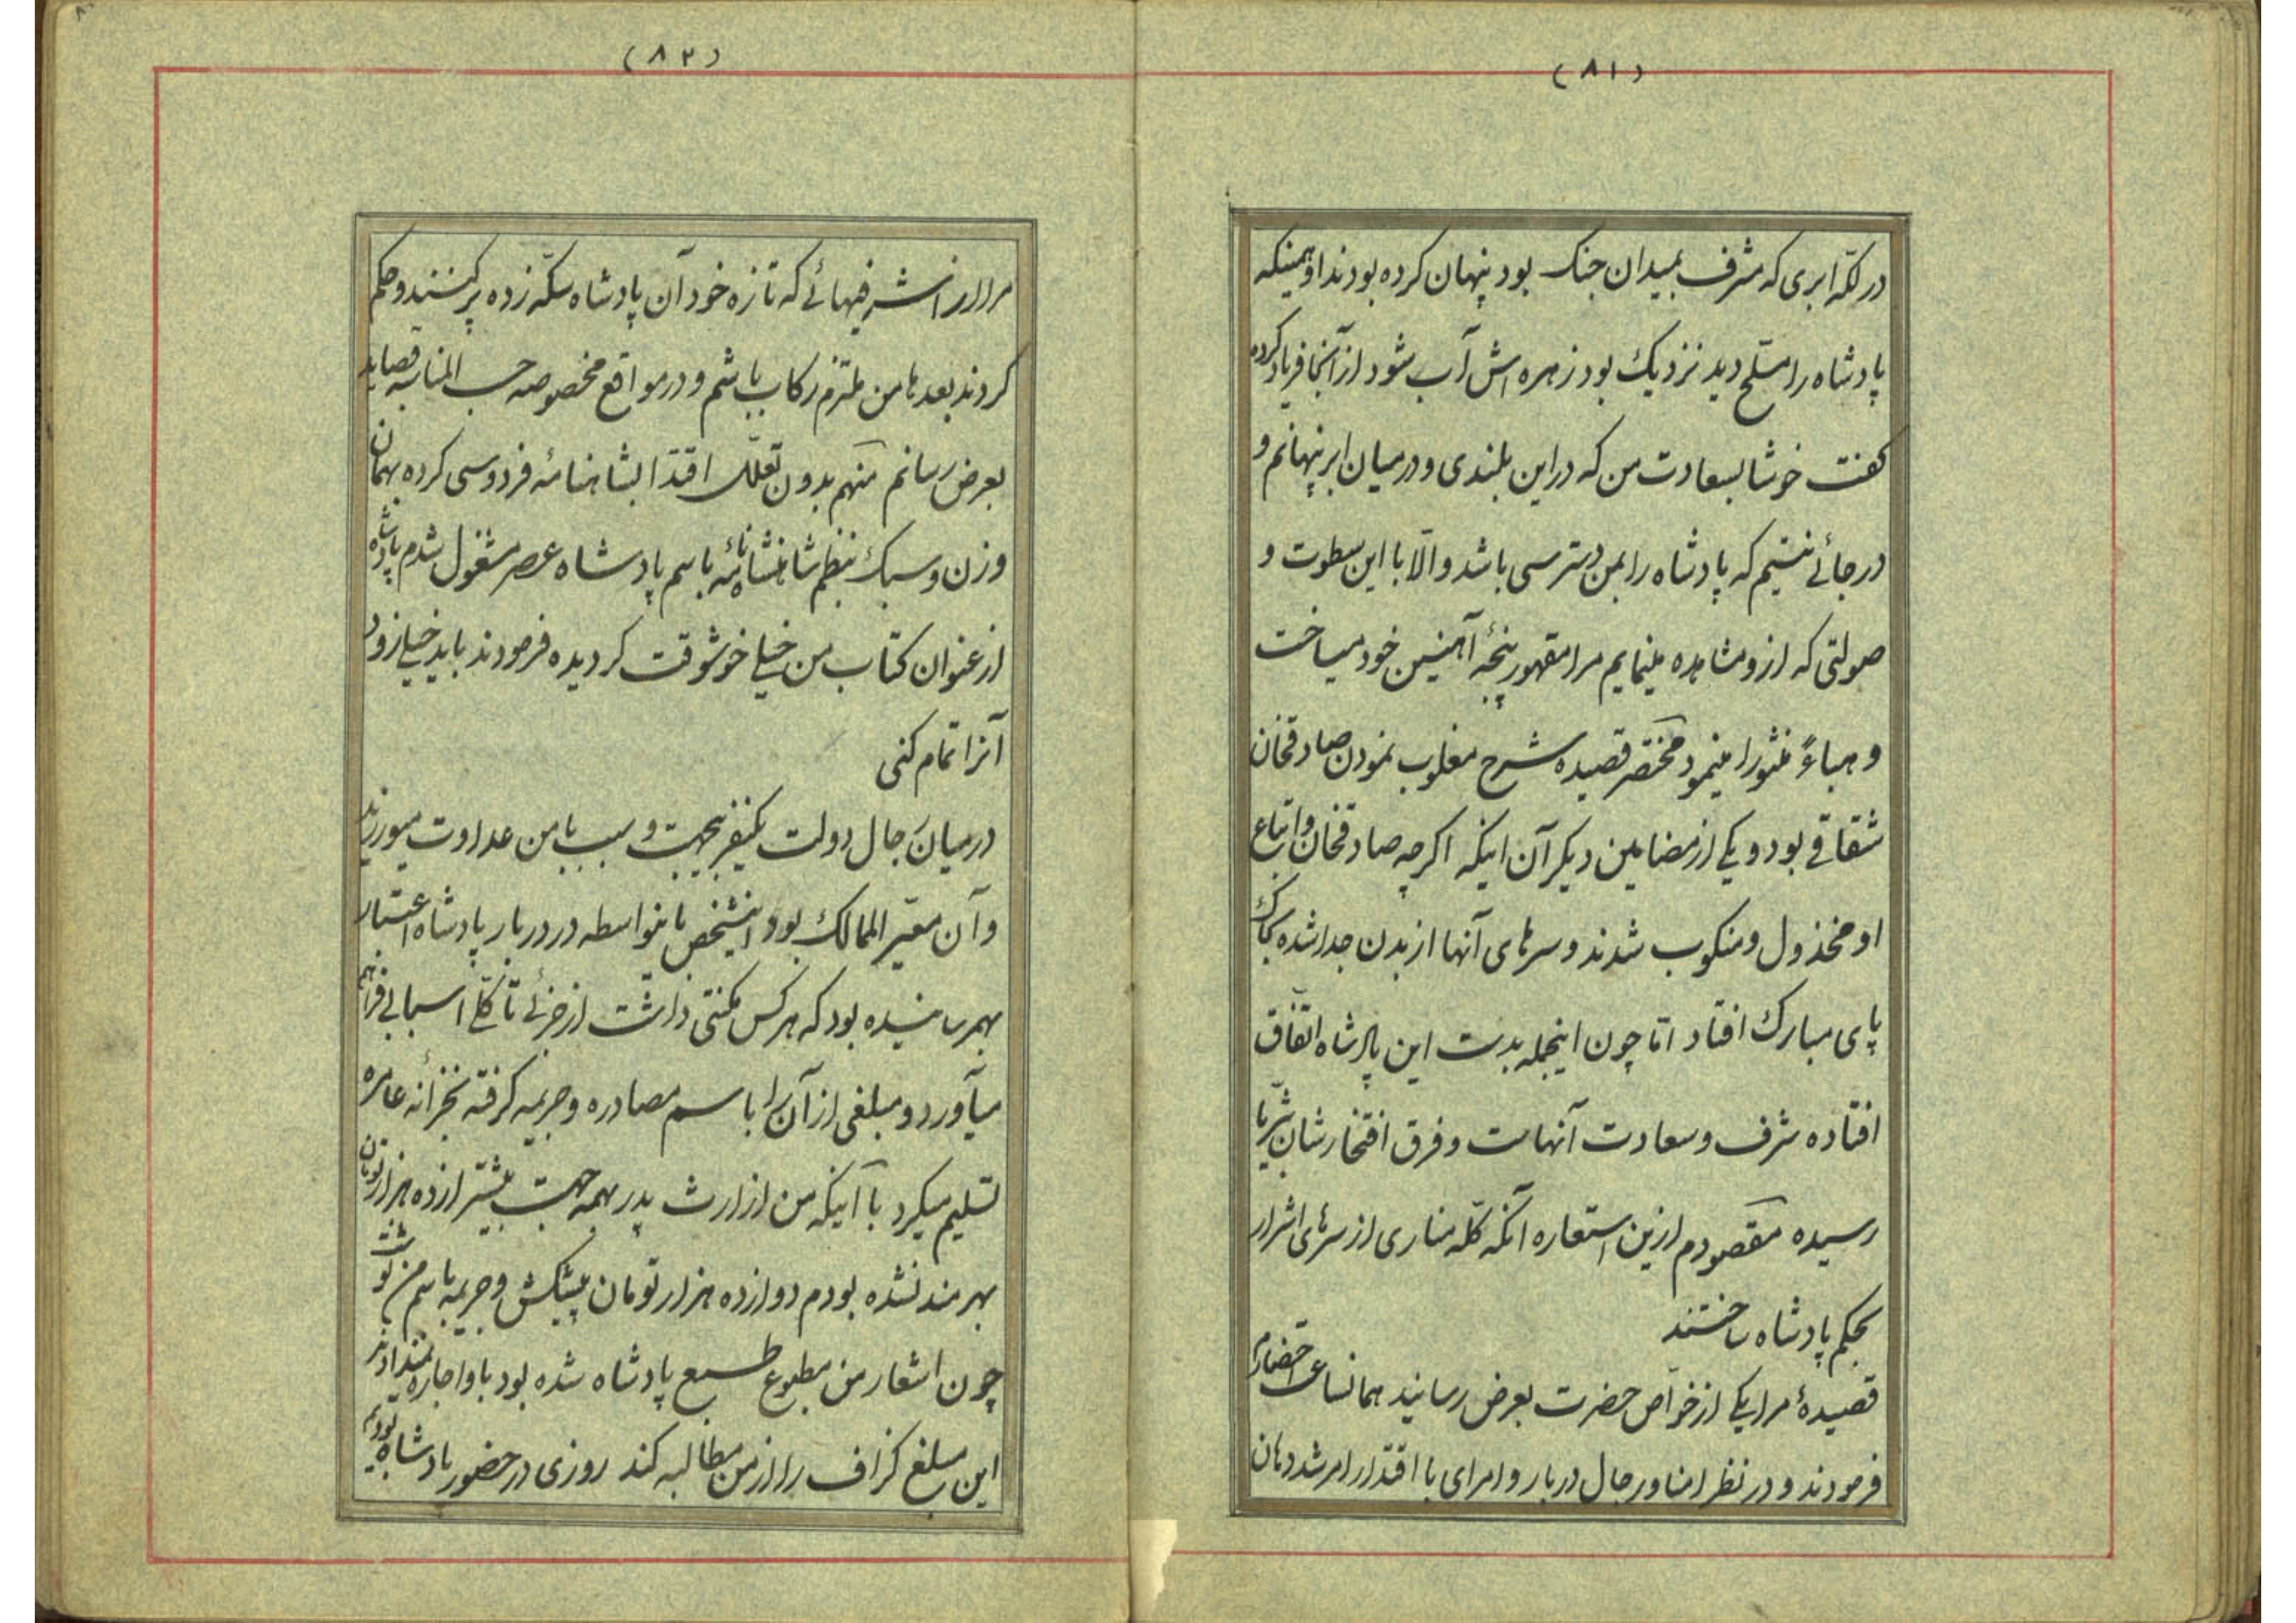 (۸۱)
در لکّه ابری که مشرف بمیدان جنک بود پنهان کرده بودند او همینکه
پادشاه را مسلّح دید نزدیک بود زهره اش آب شود از آنجا فریاد کرده
کفت خوشا بسعادت من که در این بلندی و در میان ابر پنهانم و
در جائے نیستم که پادشاه را بمن دسترسی باشد والّا با این سطوت و
صولتی که ازو مشاهده مینمایم مرا مقهور پنجۀ آهنین خود میساخت
و هباءً منثورا مینمود مختصر قصیده شرح مغلوب نمودن صادقخان
شقاقے بود و یکے از مضامین دیکر آن اینکه اکرچه صادقخان و اتباع
او مخذول و منکوب شدند و سرهای آنها از بدن جدا شده بخاک
پای مبارک افتاد امّا چون اینجمله بدست این پادشاه اتّفاق
افتاده شرف و سعادت آنهاست و فرق افتخارشان بثریّا
رسیده مقصودم ازین استعاره آنکه کلّه مناری از سرهای اشرار
بحکم پادشاه ساختند
قصیدۀ مرا یکے از خواصّ حضرت بعرض رسانید همانساعت احضارم
فرمودند و در نظر امنا و رجال دربار و امرای با اقتدار امر شد دهان
(۸۲)
مرا از اشرفیهائے که تازه خود آن پادشاه سکّه زده پر کنند و حکم
کردند بعدها من ملتزم رکاب باشم و در مواقع مخصوصه حسب المناسبه قصاید
بعرض رسانم منهم بدون تعلّل اقتدا بشاهنامۀ فردوسی کرده بهمان
وزن و سبک بنظم شاهنشاه‌نامه باسم پادشاه عصر مشغول شدم پادشاه
از عنوان کتاب من خیلے خوشوقت کردیده فرمودند باید خیلے زود
آنرا تمام کنی
در میان رجال دولت یکنفر بیجهت و سبب با من عداوت میورزید
و آن معیّر الممالک بود اینشخص باینواسطه در دربار پادشاه اعتبار
بهمرسانیده بود که هر کس مکنتی داشت از جزئے تا کلّے اسبابے فراهم
میآورد و مبلغی از آن را باسم مصادره و جریمه کرفته بخزانه عامره
تسلیم میکرد با آنیکه من از ارث پدر بهمه جهت بیشتر از ده هزار تومان
بهرمند نشده بودم دوازده هزار تومان پیشکش و جریمه باسم من نوشت
چون اشعار من مطبوع طبع پادشاه شده بود باو اجازه نمیدادند
این مبلغ کزاف را از من مطالبه کند روزی در حضور پادشاه بودیم